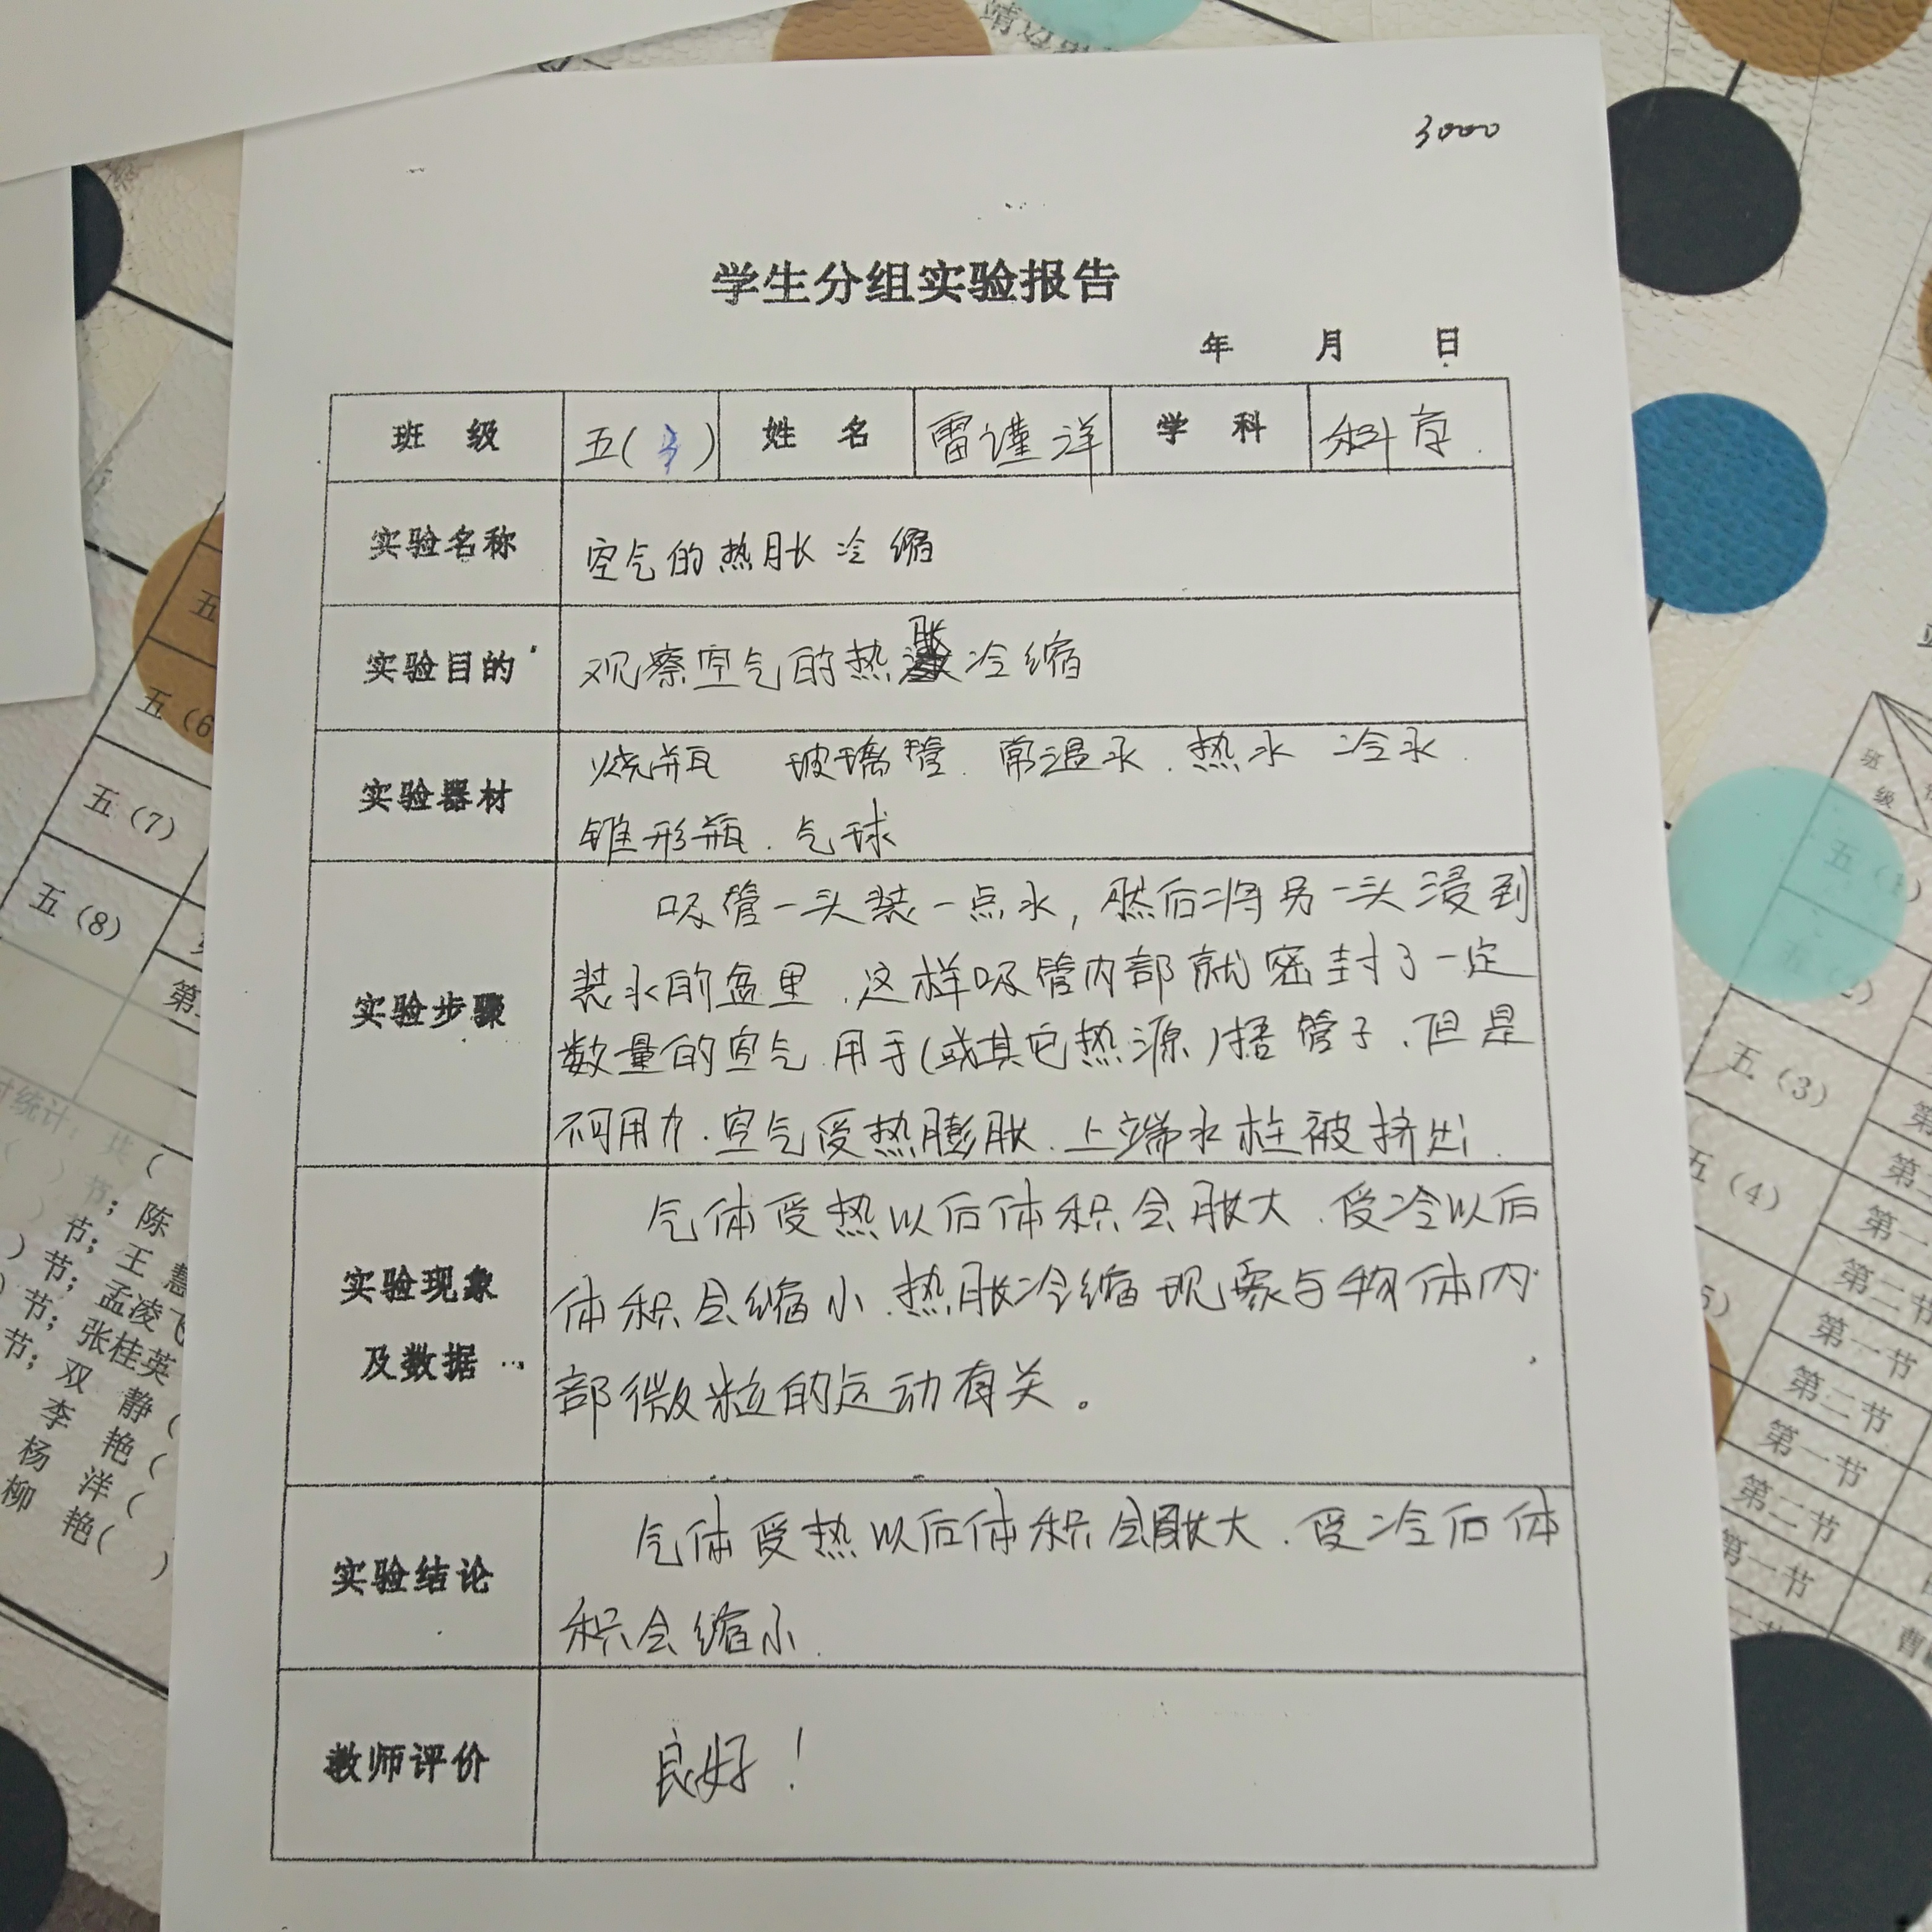 3000
学生分组实验报告
年 月 日
班 级 五( ) 姓 名 雷谨洋 学 科 科学
实验名称 空气的热胀冷缩
实验目的 观察空气的热胀冷缩
实验器材 烧瓶 玻璃管.常温水.热水 冷水.
锥形瓶.气球
实验步骤 吸管一头装一点水,然后将另一头浸到
装水的盆里.这样吸管内部就密封了一定
数量的空气.用手(或其它热源)捂管子.但是
不可用力.空气受热膨胀.上端水柱被挤出.
实验现象
及数据
气体受热以后体积会胀大.受冷以后
体积会缩小.热胀冷缩现象与物体内
部微粒的运动有关。
实验结论 气体受热以后体积会胀大.受冷后体
积会缩小.
教师评价 良好!
五(6
五(7)
五(8)
第
对统计:共(
节;陈
节;王 慧
)节;孟凌飞
)节;张桂英
节;双 静(
李 艳(
杨 洋( )
柳 艳( )
靖边
班
级
五(1)
五(2)
五(3)
五(4)
5)
第一
第二节
第一节
第二节
第一节
第二节
第一节
曹